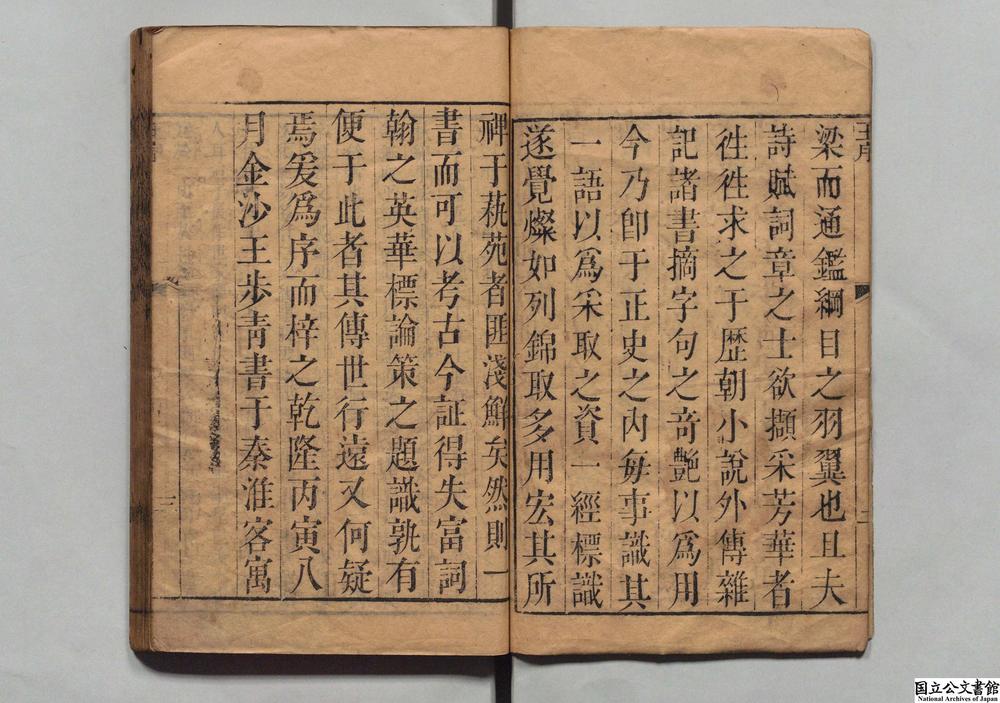 梁而通鑑綱目之羽翼也且夫
詩賦詞章之士欲擷采芳華者
徃徃求之于歷朝小說外傳雜
記諸書摘字句之竒艷以爲用
今乃卽于正史之內每事識其
一語以爲采取之資一經標識
遂覺燦如列錦取多用宏其所
裨于蓺苑者匪淺鮮矣然則一
書而可以考古今証得失富詞
翰之英華標論策之題識孰有
便于此者其傳世行遠又何疑
焉爰爲序而梓之乾隆丙寅八
月金沙王步靑書于秦淮客寓
王序
二
三
国立公文書館
National Archives of Japan